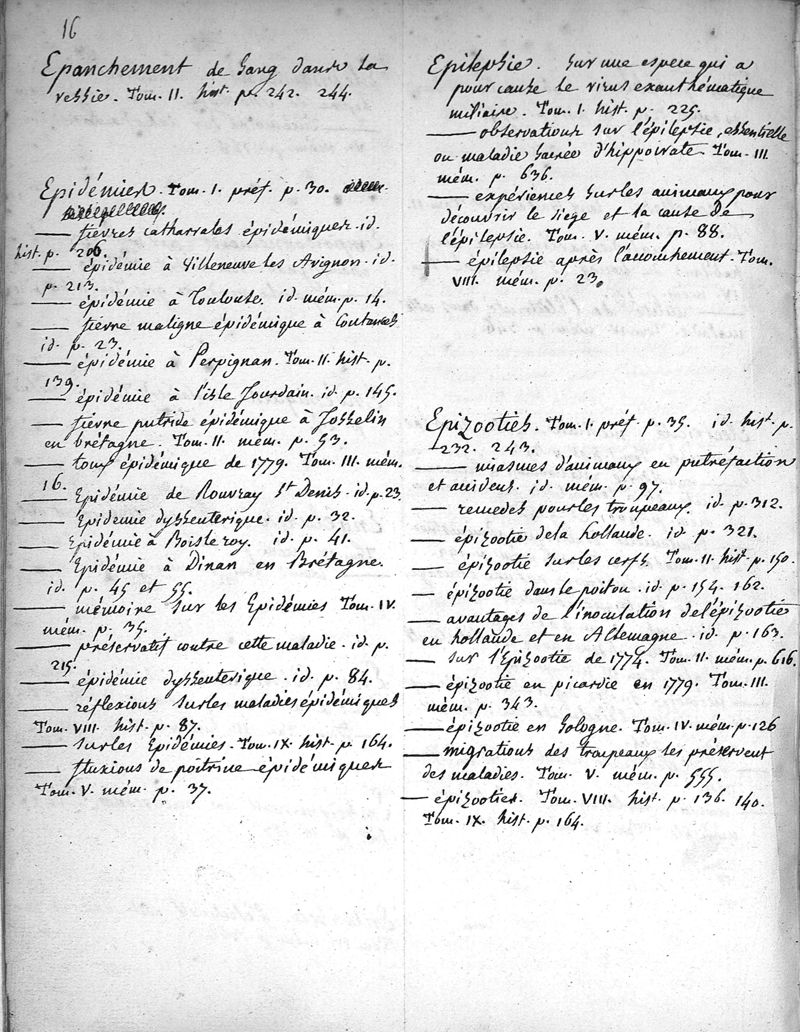 16
Epanchement de Sang dans la
vessie. Tom. II. hist. p. 242. 244.
Epidémies. Tom. I. préf. p. 30.
— fievres catharrales épidémiques. id.
hist. p. 206.
— épidémie à Villeneuve les Avignon. id.
p. 213.
— épidémie à Toulouse. id. mém. p. 14.
— fievre maligne épidémique à Coutances
id. p. 23.
— épidémie à Perpignan. Tom. II. hist. p.
139.
— épidémie à l'isle Jourdain. id. p. 145.
— fievre putride épidémique à Josselin
en bretagne. Tom. II. mém. p. 53.
— toux épidémique de 1779. Tom. III. mém.
16.
— Epidémie de Rouvray St Denis. id. p. 23
— Epidemie dyssenterique. id. p. 32.
— Epidémie à Boisleroy. id. p. 41.
— Epidémie à Dinan en Brétagne.
id. p. 45 et 55.
— mémoire sur les Epidémies Tom. IV.
mém. p. 35.
— préservatif contre cette maladie. id. p.
215.
— épidémie dyssenterique. id. p. 84.
— réflexions sur les maladies épidémiques
Tom. VIII. hist. p. 87.
— sur les Epidémies. Tom. IX. hist. p. 164.
— fluxions de poitrine épidémiques
Tom. V. mém. p. 37.
Epilepsie. Sur une espece qui a
pour cause le virus exanthématique
miliaire. Tom. I. hist. p. 225.
— observations sur l'épilepsie, essentielle
ou maladie sacrée d'hippocrate. Tom. III.
mém. p. 636.
— expériences sur les animaux pour
découvrir le siege et la cause de
l'épilepsie. Tom. V. mém. p. 88.
— épilepsie après l'accouchement. Tom.
VIII. mém. p. 23.
Epizooties. Tom. I. préf. p. 35. id. hist. p.
232. 243.
— miasmes d'animaux en putréfaction
et accidens. id. mém. p. 97.
— remedes pour les troupeaux. id. p. 312.
— épizootie de la hollande. id. p. 321.
— épizootie sur les cerfs. Tom. II. hist. p. 150.
— épizootie dans le poitou. id. p. 154. 162.
— avantages de l'inoculation de l'épizootie
en hollande et en Allemagne. id. p. 163.
— sur l'Epizootie de 1774. Tom. II. mém. p. 616.
— épizootie en picardie en 1779. Tom. III.
mém. p. 343.
— épizootie en Sologne. Tom. IV. mém. p. 126
— migrations des troupeaux les préservent
des maladies. Tom. V. mém. p. 555.
— épizooties. Tom. VIII. hist. p. 136. 140.
Tom. IX. hist. p. 164.